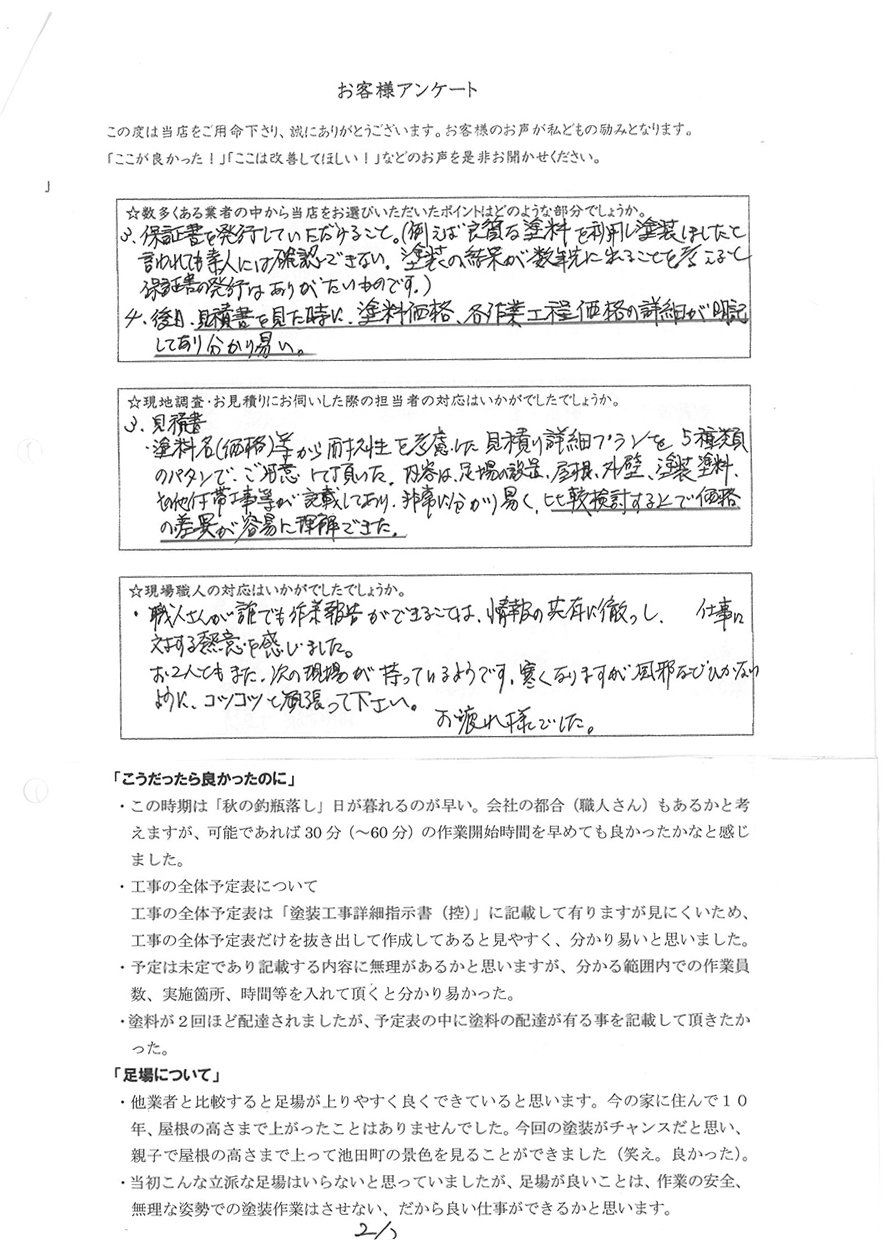 お客様アンケート
この度は当店をご用命下さり、誠にありがとうございます。お客様のお声が私どもの励みとなります。
「ここが良かった！」「ここは改善してほしい！」などのお声を是非お聞かせください。
☆数多くある業者の中から当店をお選びいただいたポイントはどのような部分でしょうか。
3、保証書を発行していただけること。（例えば良質な塗料を利用し塗装しましたと
言われても素人には確認できない。塗装の結果が数年先に出ることを考えると
保証書の発行はありがたいものです。）
4、後日、見積書を見た時に、塗料価格、各作業工程価格の詳細が明記
してあり分かり易い。
☆現地調査・お見積りにお伺いした際の担当者の対応はいかがでしたでしょうか。
3、見積書
・塗料名（価格）等から耐久性を考慮した見積り詳細プランを5種類
のパタンで、ご用意して頂いた。内容は、足場の設置、屋根、外壁、塗装塗料、
その他付帯工事等が記載してあり、非常に分かり易く、比較検討する上で価格
の差異が容易に理解できた。
☆現場職人の対応はいかがでしたでしょうか。
・職人さんが誰でも作業報告ができることは、情報の共有に徹っし、仕事に
対する熱意を感じました。
お二人ともまた、次の現場が待っているようです。寒くなりますが風邪などひかない
ように、コツコツと頑張って下さい。
お疲れ様でした。
「こうだったら良かったのに」
・この時期は「秋の釣瓶落し」日が暮れるのが早い。会社の都合（職人さん）もあるかと考
えますが、可能であれば30分（～60分）の作業開始時間を早めても良かったかなと感じ
ました。
・工事の全体予定表について
工事の全体予定表は「塗装工事詳細指示書（控）」に記載して有りますが見にくいため、
工事の全体予定表だけを抜き出して作成してあると見やすく、分かり易いと思いました。
・予定は未定であり記載する内容に無理があるかと思いますが、分かる範囲内での作業員
数、実施箇所、時間等を入れて頂くと分かり易かった。
・塗料が２回ほど配達されましたが、予定表の中に塗料の配達が有る事を記載して頂きたか
った。
「足場について」
・他業者と比較すると足場が上りやすく良くできていると思います。今の家に住んで１０
年、屋根の高さまで上がったことはありませんでした。今回の塗装がチャンスだと思い、
親子で屋根の高さまで上って池田町の景色を見ることができました（笑え。良かった）。
・当初こんな立派な足場はいらないと思っていましたが、足場が良いことは、作業の安全、
無理な姿勢での塗装作業はさせない、だから良い仕事ができるかと思います。